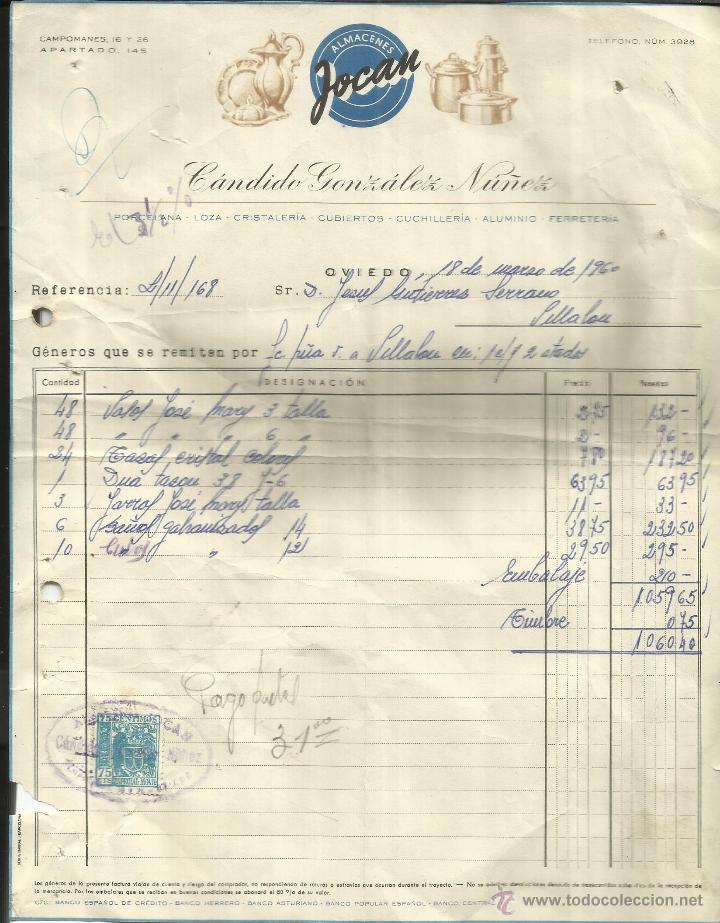 CAMPOMANES, 16 Y 26
APARTADO, 145
TELÉFONO, NÚM. 3928
ALMACENES
Jocan
Cándido González Núñez
2½%
PORCELANA - LOZA - CRISTALERÍA - CUBIERTOS - CUCHILLERÍA - ALUMINIO - FERRETERÍA
OVIEDO, 18 de marzo de 1960
Referencia: 2/11/168 Sr. D. Jesus Gutierres Serrano
Géneros que se remiten por
Cantidad DESIGNACIÓN Precio Pesetas
48 Vasos José Mary 3 talla 2 75 132 -
48 " " " 6 2 - 96 -
24 Tazas cristal 7 80 187 20
1 38 63 95 63 95
3 Jarras José Mary talla 11 - 33 -
6 Baños galvanizados 14 38 75 232 50
10 " 12 29 50 295 -
Embalaje 210 -
1.059 65
Timbre 0 75
1.060 40
Pago
75 CENTIMOS
75
Los géneros de la presente factura viajan de cuenta y riesgo del comprador, no respondiendo de roturas o extravíos que ocurran durante el trayecto. — No se admiten devoluciones después de transcurridos ocho días de la recepción de
la mercancía. Por los embalajes que se reciban en buenas condiciones se abonará el 80 % de su valor.
C/C.: BANCO ESPAÑOL DE CRÉDITO - BANCO HERRERO - BANCO ASTURIANO - BANCO POPULAR ESPAÑOL - BANCO CENTRAL
todocoleccion
www.todocoleccion.net